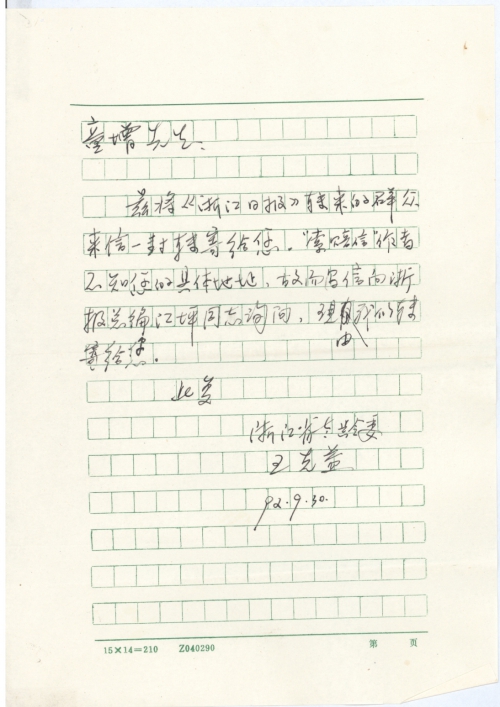 童增先生：
兹将《浙江日报》转来的群众
来信一封转寄给您。"索赔信"作者
不知您的具体地址，故而写信向浙
报总编江坪同志询问，现由我们转
寄给您。
此致
浙江省
王克益
92.9.30.
15×14=210 Z040290 第 页